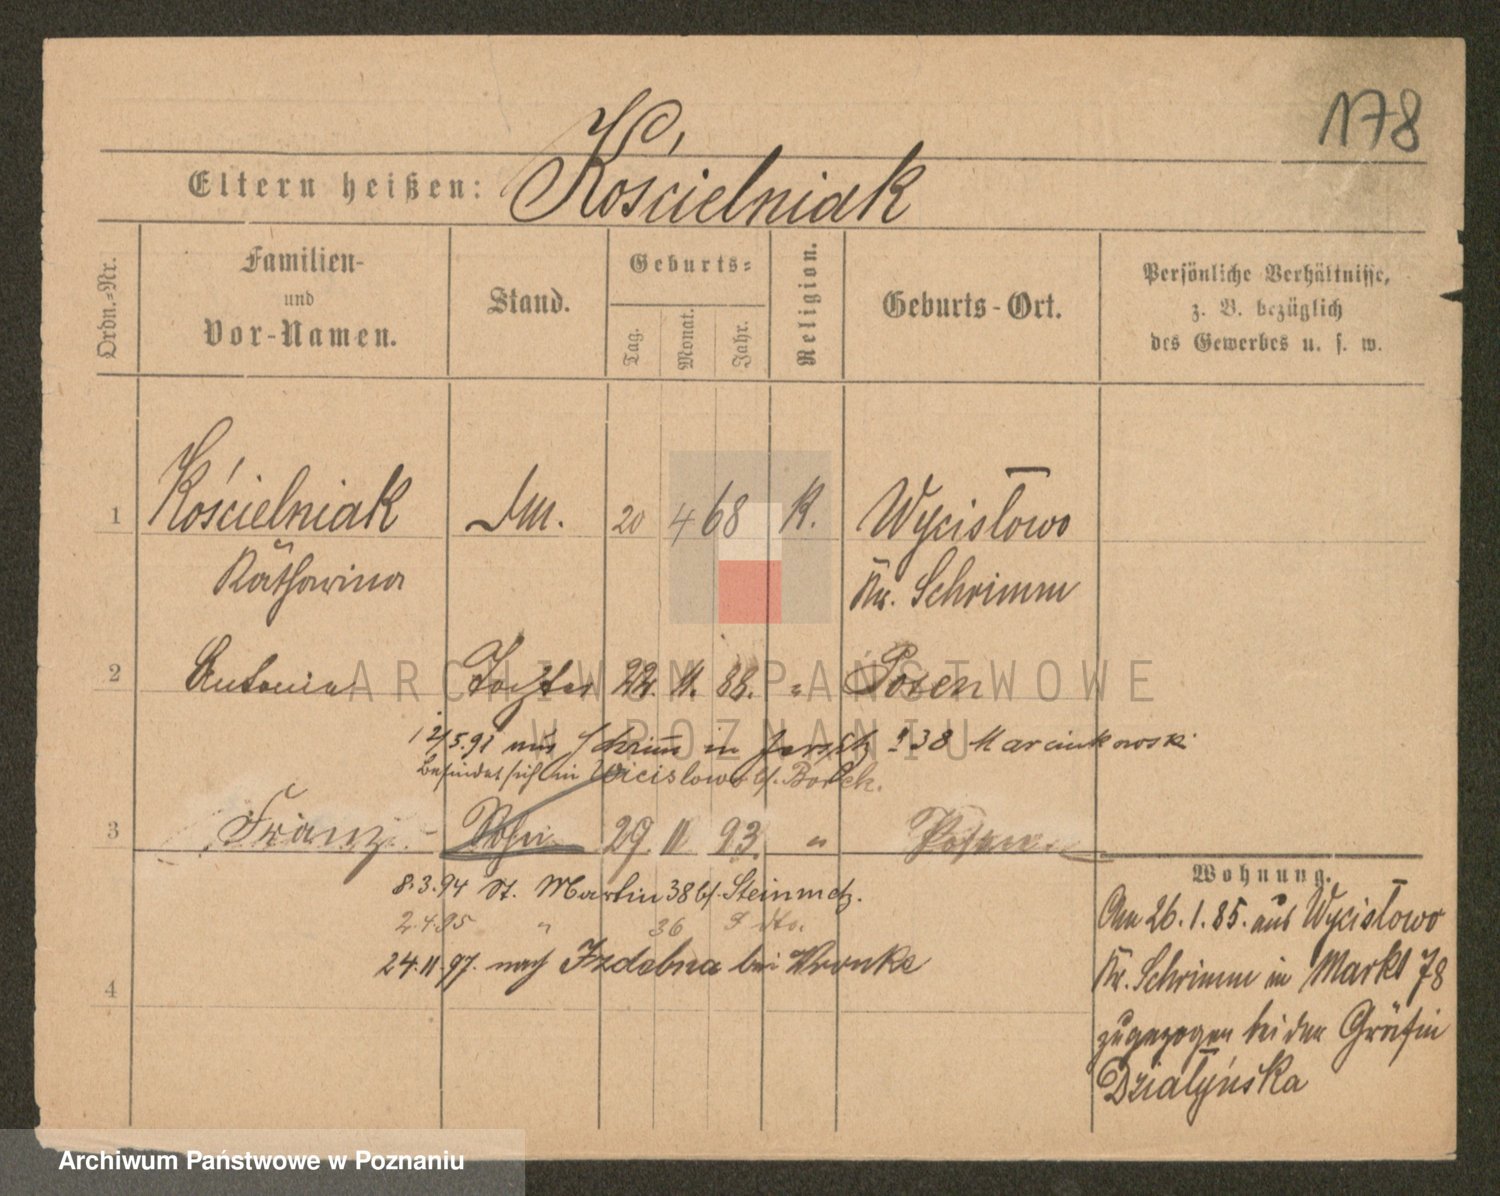 178
Eltern heißen: Kościelniak
Ordn.-Nr.
Familien-
und
Vor-Namen.
Stand.
Geburts-
Tag.
Monat.
Jahr.
Religion.
Geburts-Ort.
Persönliche Verhältnisse,
z. B. bezüglich
des Gewerbes u. s. w.
1 Kościelniak 20 4 68 K. Wycisłowo
Katharina Kr. Schrimm
2 Antonie Tochter 22. 11. 88. " Posen
5.91 aus Schrimm in 38 Marcinkowski
befindet sich in Wicislowo b/. Borek.
3 Franz Sohn 29. 11 93. " Posen
8.3.94 St. Martin 38 b/. Steinmetz.
2.4.95 " 36 dto.
24.11.97. nach Izdebna bei Wronke
4
Wohnung.
Am 26.1.85. aus Wycisłowo
Kr. Schrimm in Markt 78
zugezogen bei der Gräfin
Działyńska
ARCHIWUM PAŃSTWOWE
W POZNANIU
Archiwum Państwowe w Poznaniu